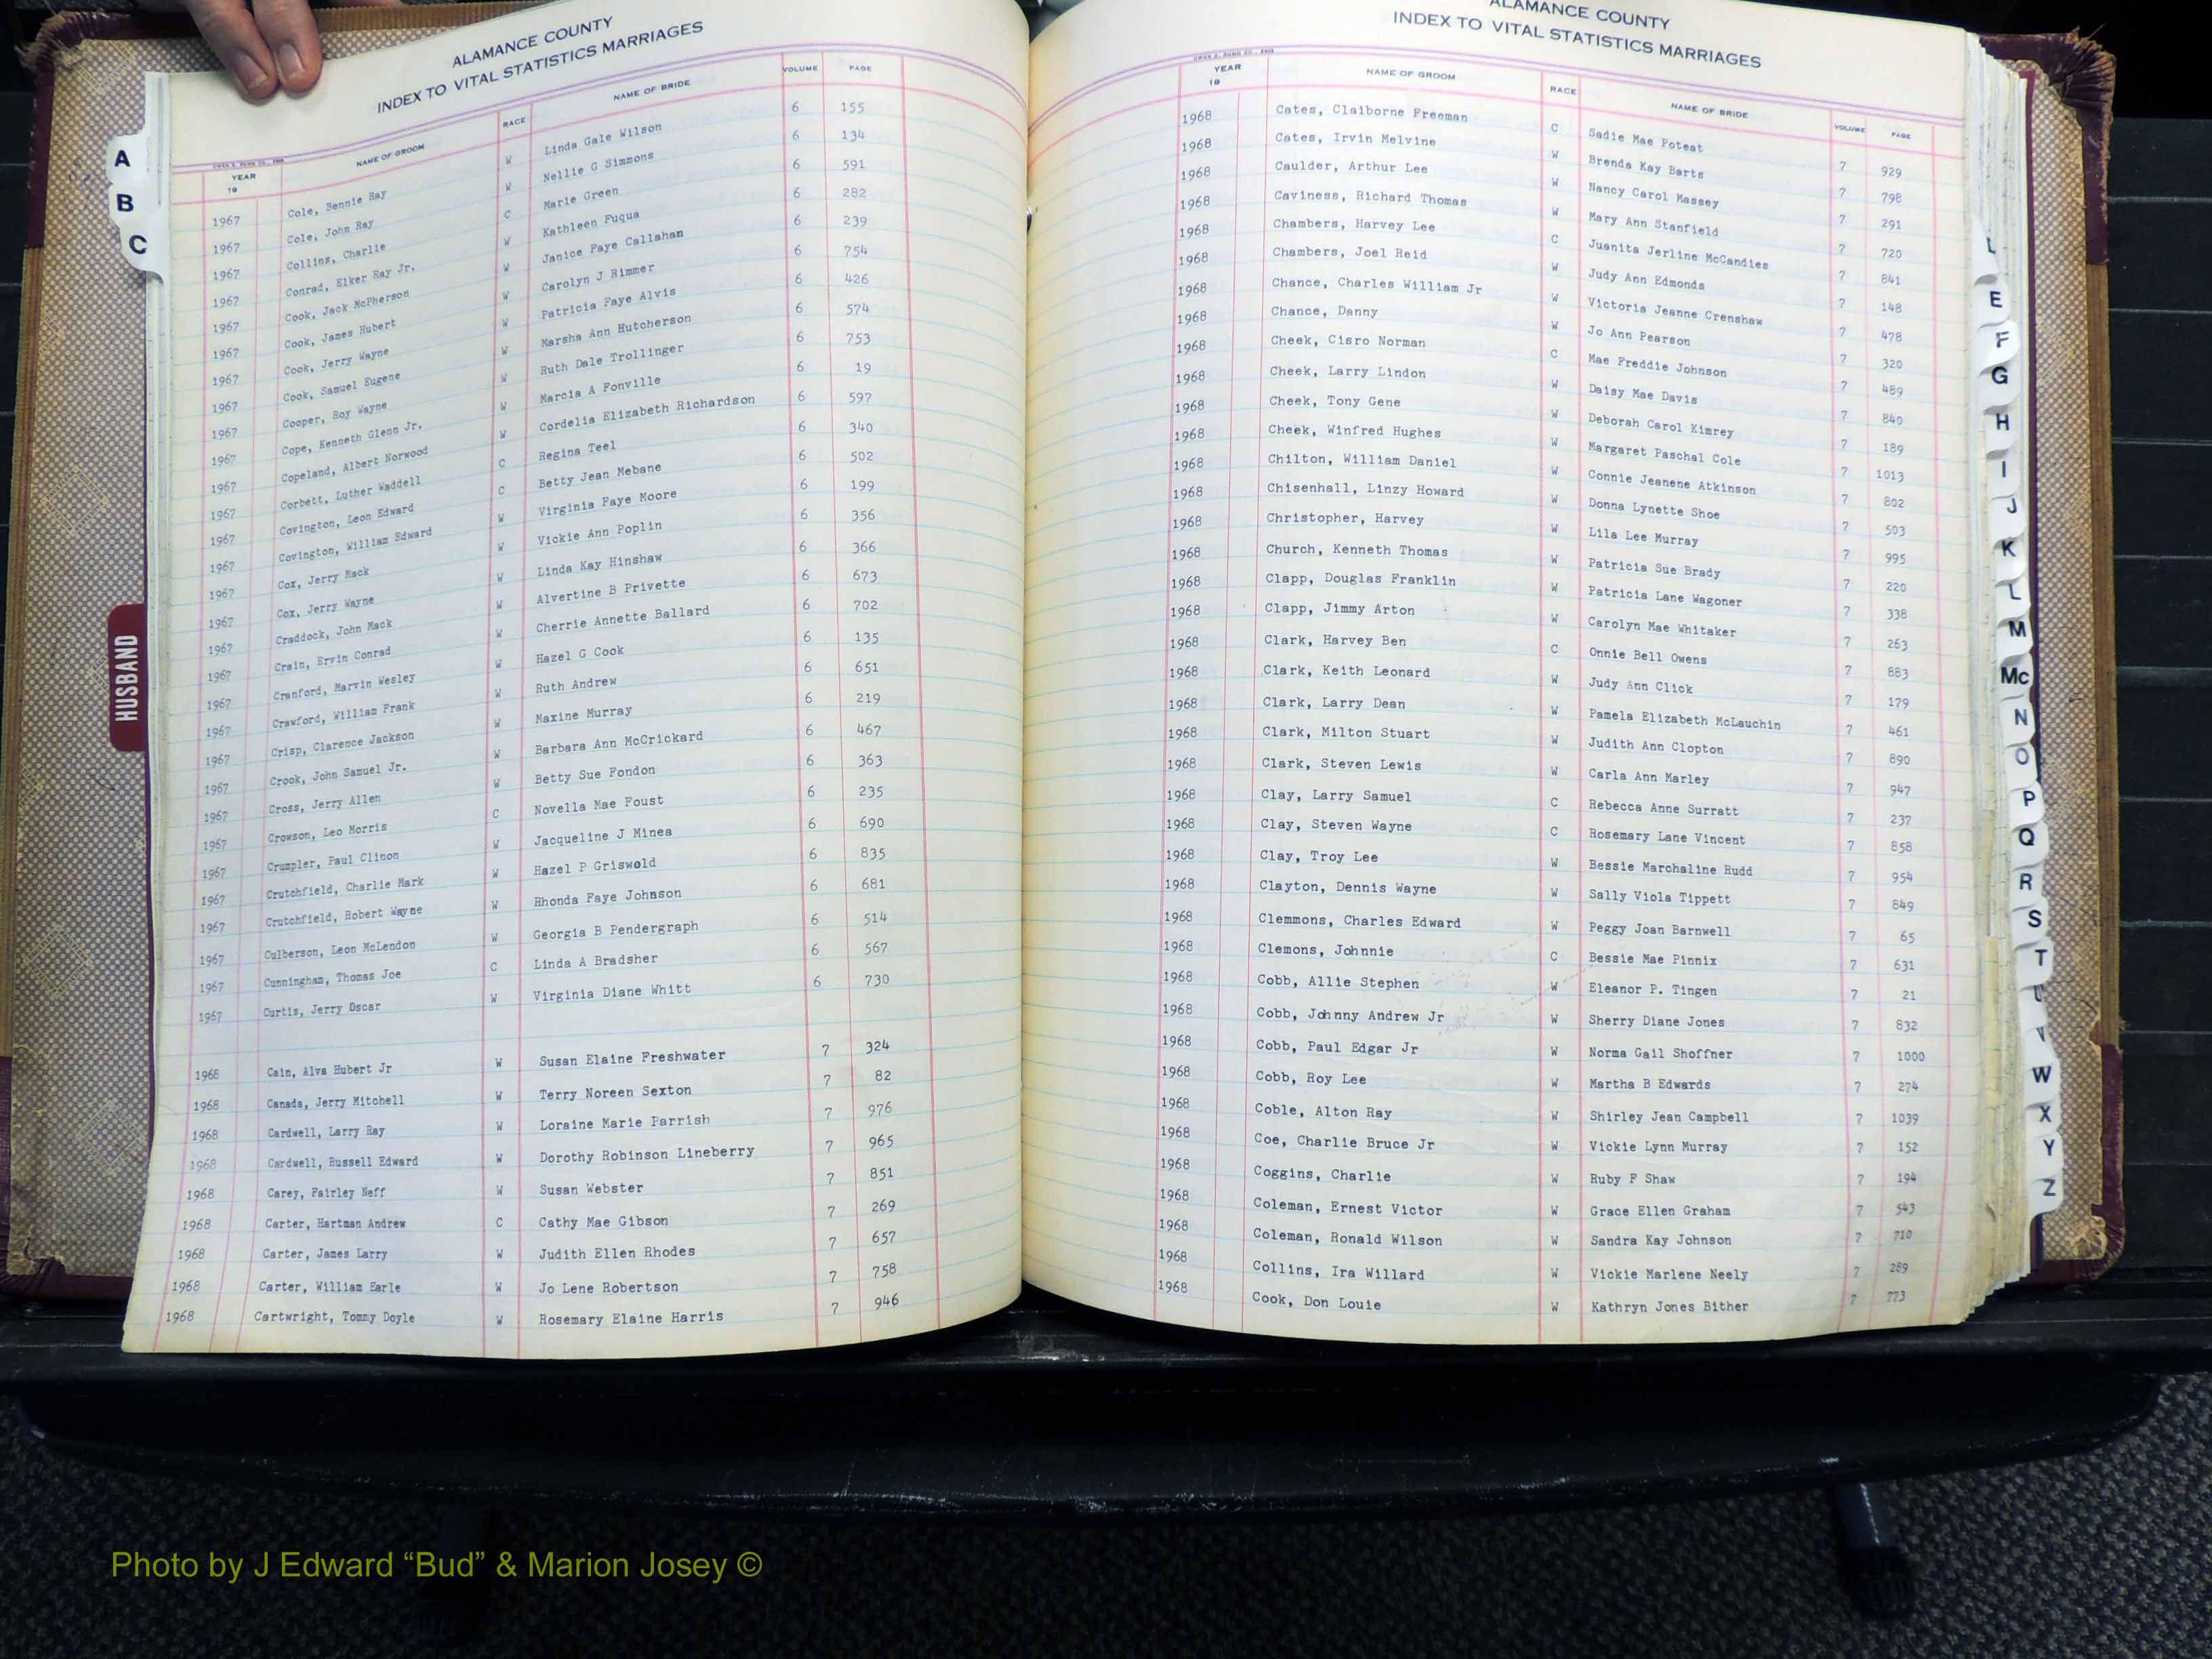 ALAMANCE COUNTY
INDEX TO VITAL STATISTICS MARRIAGES
YEAR 19 NAME OF GROOM RACE NAME OF BRIDE VOLUME PAGE
1967 Cole, Bennie Ray W Linda Gale Wilson 6 155
1967 Cole, John Ray W Nellie G Simmons 6 134
1967 Collins, Charlie C Marie Green 6 591
1967 Conrad, Elker Ray Jr. W Kathleen Fuqua 6 282
1967 Cook, Jack McPherson W Janice Faye Callahan 6 239
1967 Cook, James Hubert W Carolyn J Rimmer 6 754
1967 Cook, Jerry Wayne W Patricia Faye Alvis 6 426
1967 Cook, Samuel Eugene W Marsha Ann Hutcherson 6 574
1967 Cooper, Roy Wayne W Ruth Dale Trollinger 6 753
1967 Cope, Kenneth Glenn Jr. W Marcia A Fonville 6 19
1967 Copeland, Albert Norwood W Cordelia Elizabeth Richardson 6 597
1967 Corbett, Luther Waddell C Regina Teel 6 340
1967 Covington, Leon Edward C Betty Jean Mebane 6 502
1967 Covington, William Edward W Virginia Faye Moore 6 199
1967 Cox, Jerry Mack W Vickie Ann Poplin 6 356
1967 Cox, Jerry Wayne W Linda Kay Hinshaw 6 366
1967 Craddock, John Mack W Alvertine B Privette 6 673
1967 Crain, Ervin Conrad W Cherrie Annette Ballard 6 702
1967 Cranford, Marvin Wesley W Hazel G Cook 6 135
1967 Crawford, William Frank W Ruth Andrew 6 651
1967 Crisp, Clarence Jackson W Maxine Murray 6 219
1967 Crook, John Samuel Jr. W Barbara Ann McCrickard 6 467
1967 Cross, Jerry Allen W Betty Sue Fondon 6 363
1967 Crowson, Leo Morris C Novella Mae Foust 6 235
1967 Crumpler, Paul Clinon W Jacqueline J Minea 6 690
1967 Crutchfield, Charlie Mark W Hazel P Griswold 6 835
1967 Crutchfield, Robert Wayne W Rhonda Faye Johnson 6 681
1967 Culberson, Leon McLendon W Georgia B Pendergraph 6 514
1967 Cunningham, Thomas Joe C Linda A Bradsher 6 567
1967 Curtis, Jerry Oscar W Virginia Diane Whitt 6 730
1968 Cain, Alva Hubert Jr W Susan Elaine Freshwater 7 324
1968 Canada, Jerry Mitchell W Terry Noreen Sexton 7 82
1968 Cardwell, Larry Ray W Loraine Marie Parrish 7 976
1968 Cardwell, Russell Edward W Dorothy Robinson Lineberry 7 965
1968 Carey, Fairley Neff W Susan Webster 7 851
1968 Carter, Hartman Andrew C Cathy Mae Gibson 7 269
1968 Carter, James Larry W Judith Ellen Rhodes 7 657
1968 Carter, William Earle W Jo Lene Robertson 7 758
1968 Cartwright, Tommy Doyle W Rosemary Elaine Harris 7 946
A
B
C
HUSBAND
ALAMANCE COUNTY
INDEX TO VITAL STATISTICS MARRIAGES
YEAR 19 NAME OF GROOM RACE NAME OF BRIDE VOLUME PAGE
1968 Cates, Claiborne Freeman C Sadie Mae Poteat 7 929
1968 Cates, Irvin Melvine W Brenda Kay Barts 7 798
1968 Caulder, Arthur Lee W Nancy Carol Massey 7 291
1968 Caviness, Richard Thomas W Mary Ann Stanfield 7 720
1968 Chambers, Harvey Lee C Juanita Jerline McCandies 7 841
1968 Chambers, Joel Reid W Judy Ann Edmonds 7 148
1968 Chance, Charles William Jr W Victoria Jeanne Crenshaw 7 478
1968 Chance, Danny W Jo Ann Pearson 7 320
1968 Cheek, Cisro Norman C Mae Freddie Johnson 7 489
1968 Cheek, Larry Lindon W Daisy Mae Davis 7 840
1968 Cheek, Tony Gene W Deborah Carol Kimrey 7 189
1968 Cheek, Winfred Hughes W Margaret Paschal Cole 7 1013
1968 Chilton, William Daniel W Connie Jeanene Atkinson 7 802
1968 Chisenhall, Linzy Howard W Donna Lynette Shoe 7 503
1968 Christopher, Harvey W Lila Lee Murray 7 995
1968 Church, Kenneth Thomas W Patricia Sue Brady 7 220
1968 Clapp, Douglas Franklin W Patricia Lane Wagoner 7 338
1968 Clapp, Jimmy Arton W Carolyn Mae Whitaker 7 263
1968 Clark, Harvey Ben C Onnie Bell Owens 7 883
1968 Clark, Keith Leonard W Judy Ann Click 7 179
1968 Clark, Larry Dean W Pamela Elizabeth McLauchin 7 461
1968 Clark, Milton Stuart W Judith Ann Clopton 7 890
1968 Clark, Steven Lewis W Carla Ann Marley 7 947
1968 Clay, Larry Samuel C Rebecca Anne Surratt 7 237
1968 Clay, Steven Wayne C Rosemary Lane Vincent 7 858
1968 Clay, Troy Lee W Bessie Marchaline Rudd 7 954
1968 Clayton, Dennis Wayne W Sally Viola Tippett 7 849
1968 Clemmons, Charles Edward W Peggy Joan Barnwell 7 65
1968 Clemons, Johnnie C Bessie Mae Pinnix 7 631
1968 Cobb, Allie Stephen W Eleanor P. Tingen 7 21
1968 Cobb, Johnny Andrew Jr W Sherry Diane Jones 7 832
1968 Cobb, Paul Edgar Jr W Norma Gail Shoffner 7 1000
1968 Cobb, Roy Lee W Martha B Edwards 7 274
1968 Coble, Alton Ray W Shirley Jean Campbell 7 1039
1968 Coe, Charlie Bruce Jr W Vickie Lynn Murray 7 152
1968 Coggins, Charlie W Ruby F Shaw 7 194
1968 Coleman, Ernest Victor W Grace Ellen Graham 7 543
1968 Coleman, Ronald Wilson W Sandra Kay Johnson 7 710
1968 Collins, Ira Willard W Vickie Marlene Neely 7 289
1968 Cook, Don Louie W Kathryn Jones Bither 7 773
E
F
G
H
I
J
K
L
M
Mc
N
O
P
Q
R
S
T
U
V
W
X
Y
Z
Photo by J Edward “Bud” & Marion Josey ©